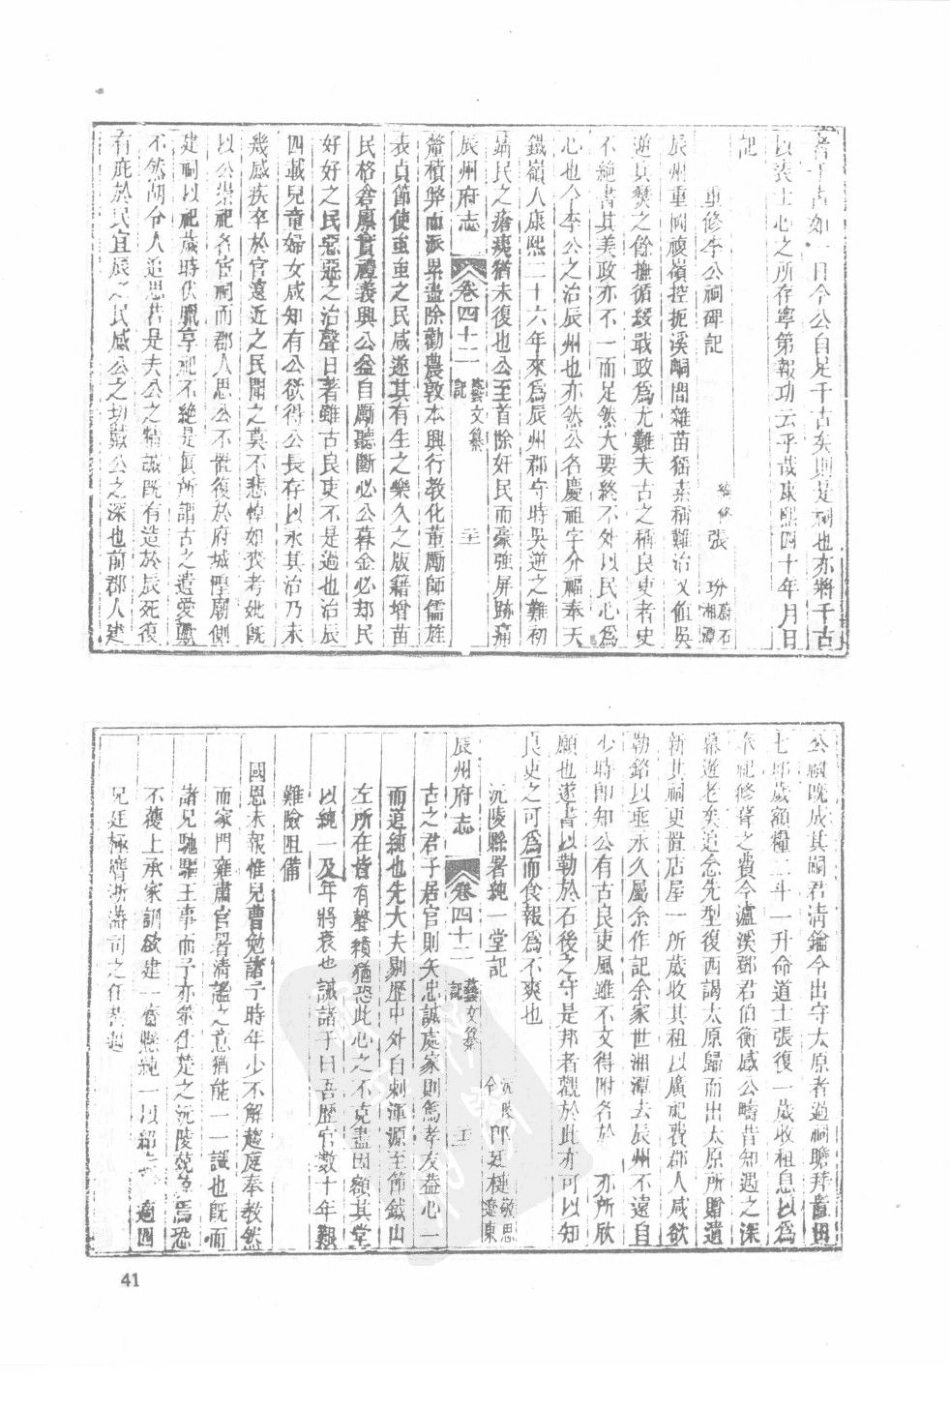 者千古如一日今公自足千古矣則是祠也亦將千古
以表士心之所存寧第報功云乎哉康熙四十年月日
記
重修李公祠碑記 編修張 玢蔚石湘潭
辰州重岡複嶺控扼溪峒間雜苗猺素稱難治又值吳
逆兵燹之餘撫循綏戢政爲尤難夫古之稱良吏者史
不絶書其美政亦不一而足然大要終不外以民心爲
心也今李公之治辰州也亦然公名慶祖字分福奉天
鐵嶺人康熙二十六年來爲辰州郡守時吳逆之難初
靖民之瘡痍猶未復也公至首除奸民而豪強屏跡痛
辰州府志 卷四十二 藝文纂 記
釐積弊而派累盡除勸農敦本興行教化董勵師儒旌
表貞節使重重之民咸遂其有生之樂久之版籍增苗
民格倉廩實禮義興公益自勵聽斷必公暮金必却民
好好之民惡惡之治聲日著雖古良吏不是過也治辰
四載兒童婦女咸知有公欲得公長存以永其治乃未
幾感疾卒於官遠近之民聞之莫不悲悼如喪考妣既
以公崇祀名宦祠而郡人思公不置復於府城壓廟側
建祠以祀歲時伏臘享祀不絶是眞所謂古之遺愛歟
不然胡令人追思若是夫公之精誠既有造於辰死復
有庇於民宜辰之民感公之切戴公之深也前郡人建
公祠既成其嗣君清鑰今出守太原者過祠瞻拜置田
七坵歲額糧二斗一升命道士張復一歲收租息以爲
奉祀修葺之費今瀘溪鄧君伯衡感公疇昔知遇之深
幕遊老矣追念先型復西謁太原歸而出太原所贈遺
新其祠更置店屋一所歲收其租以廣祀費郡人咸欲
勒銘以垂永久屬余作記余家世湘潭去辰州不遠自
少時卽知公有古良吏風雖不文得附名於 亦所欣
願也遂書以勒於石後之守是邦者觀於此亦可以知
良吏之可爲而食報爲不爽也
沅陵縣署純一堂記 沅陵令郎廷槤敬思遼東
辰州府志 卷四十二 藝文纂 記
古之君子居官則矢忠誠處家則篤孝友蓋心一
而道純也先大夫剔歷中外自刺渾源至節鉞山
左所在皆有聲績猶恐此心之不克盡因額其堂
以純一及年將衰也誡諸子曰吾歷官數十年艱
難險阻備
國恩未報惟兒曹勉諸予時年少不解趨庭奉教然
而家門雍肅官署清謐之意猶能一一識也既而
諸兄馳驅王事而予亦筮仕楚之沅陵兢兢焉恐
不獲上承家訓欲建一齋懸純一以紹 適四
兄廷極膺浙藩司之任
41